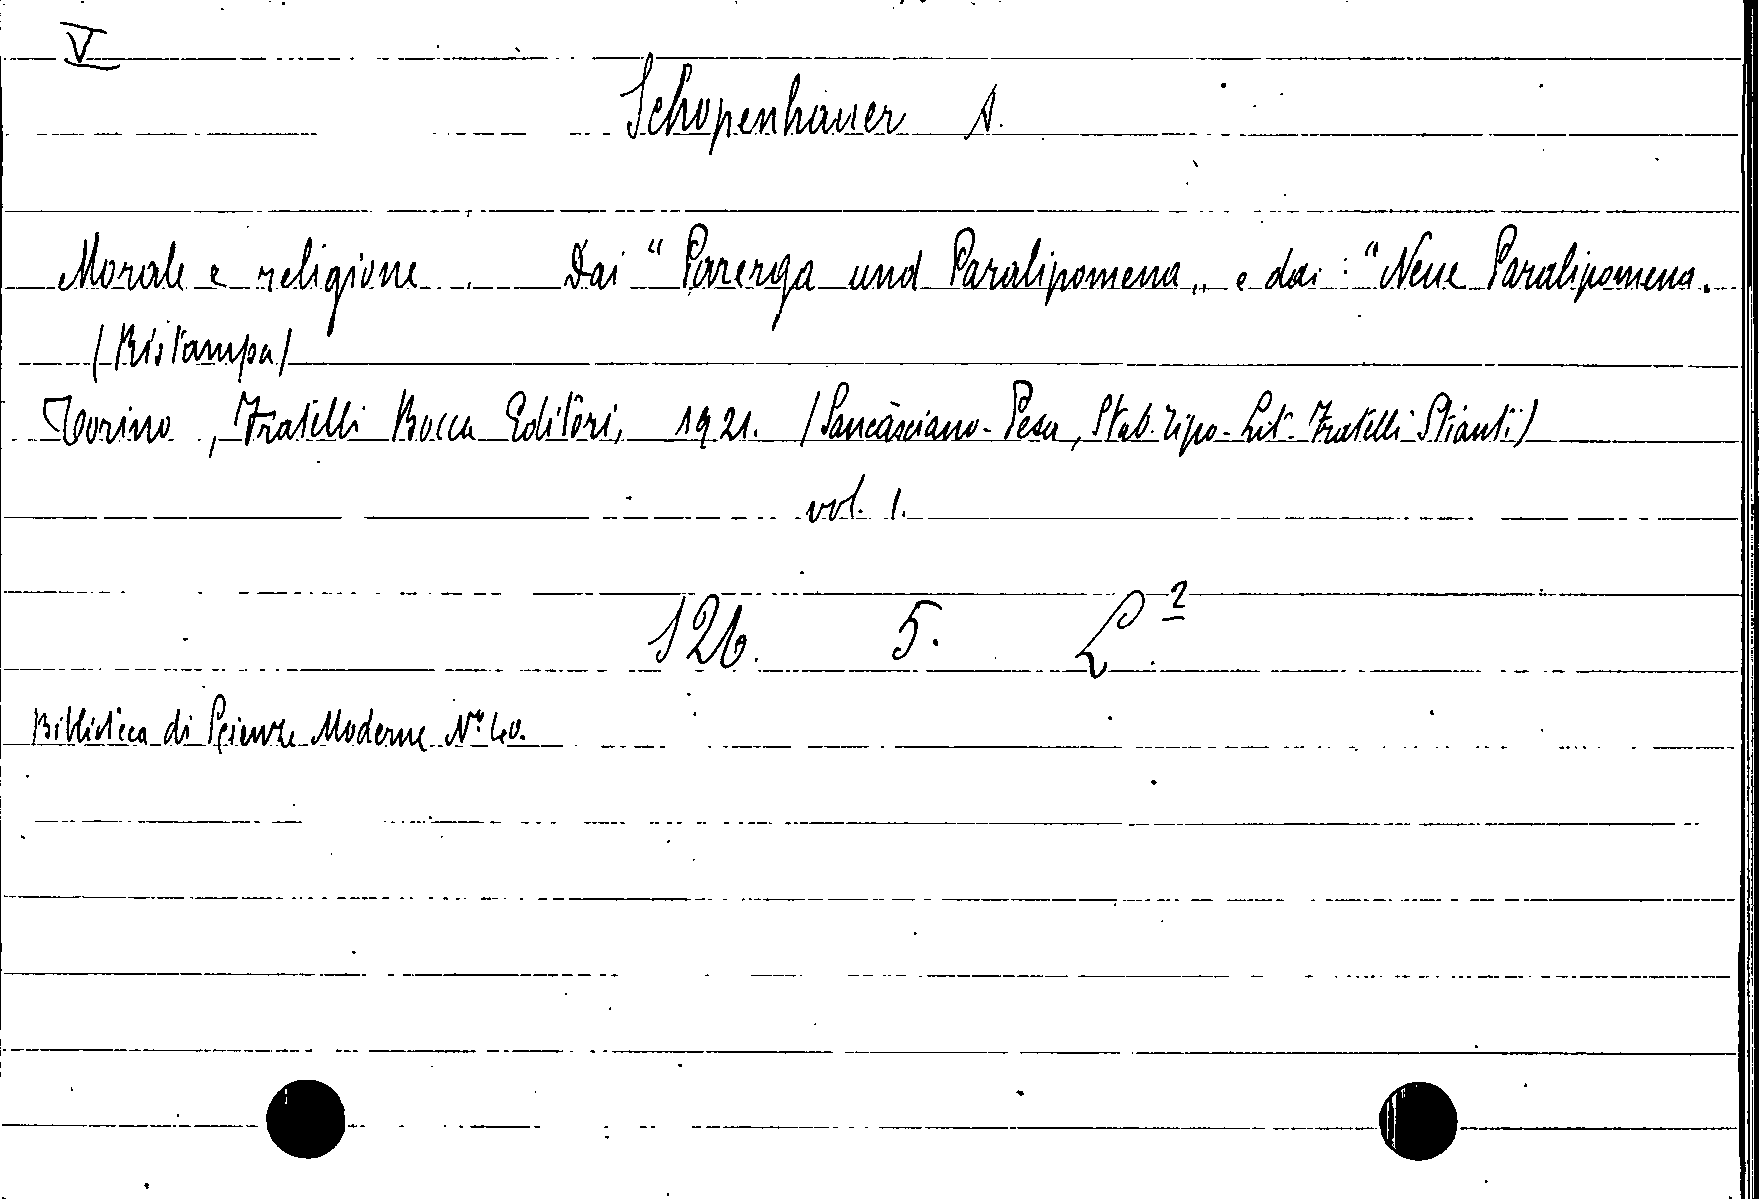 V
Schopenhauer A.
Morale e religione. Dai "Parerga und Paralipomena„ e dai: "Neue Paralipomena.
(Ristampa)
Torino, Fratelli Bocca Editori, 1921. (Sancasciano-Pesa, Stab. Tipo-Lit. Fratelli Stianti)
vol. 1.
126. 5. L.²
Biblioteca di Scienze Moderne N° 40.